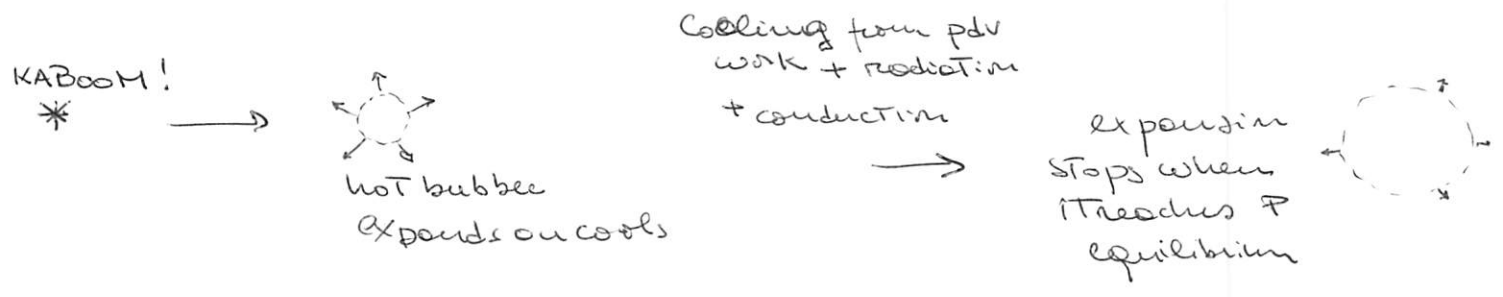 KABOOM!
hot bubble
expands on cools
Cooling from pdv
work + radiation
+ conduction
expansion
stops when
it reaches P
equilibrium